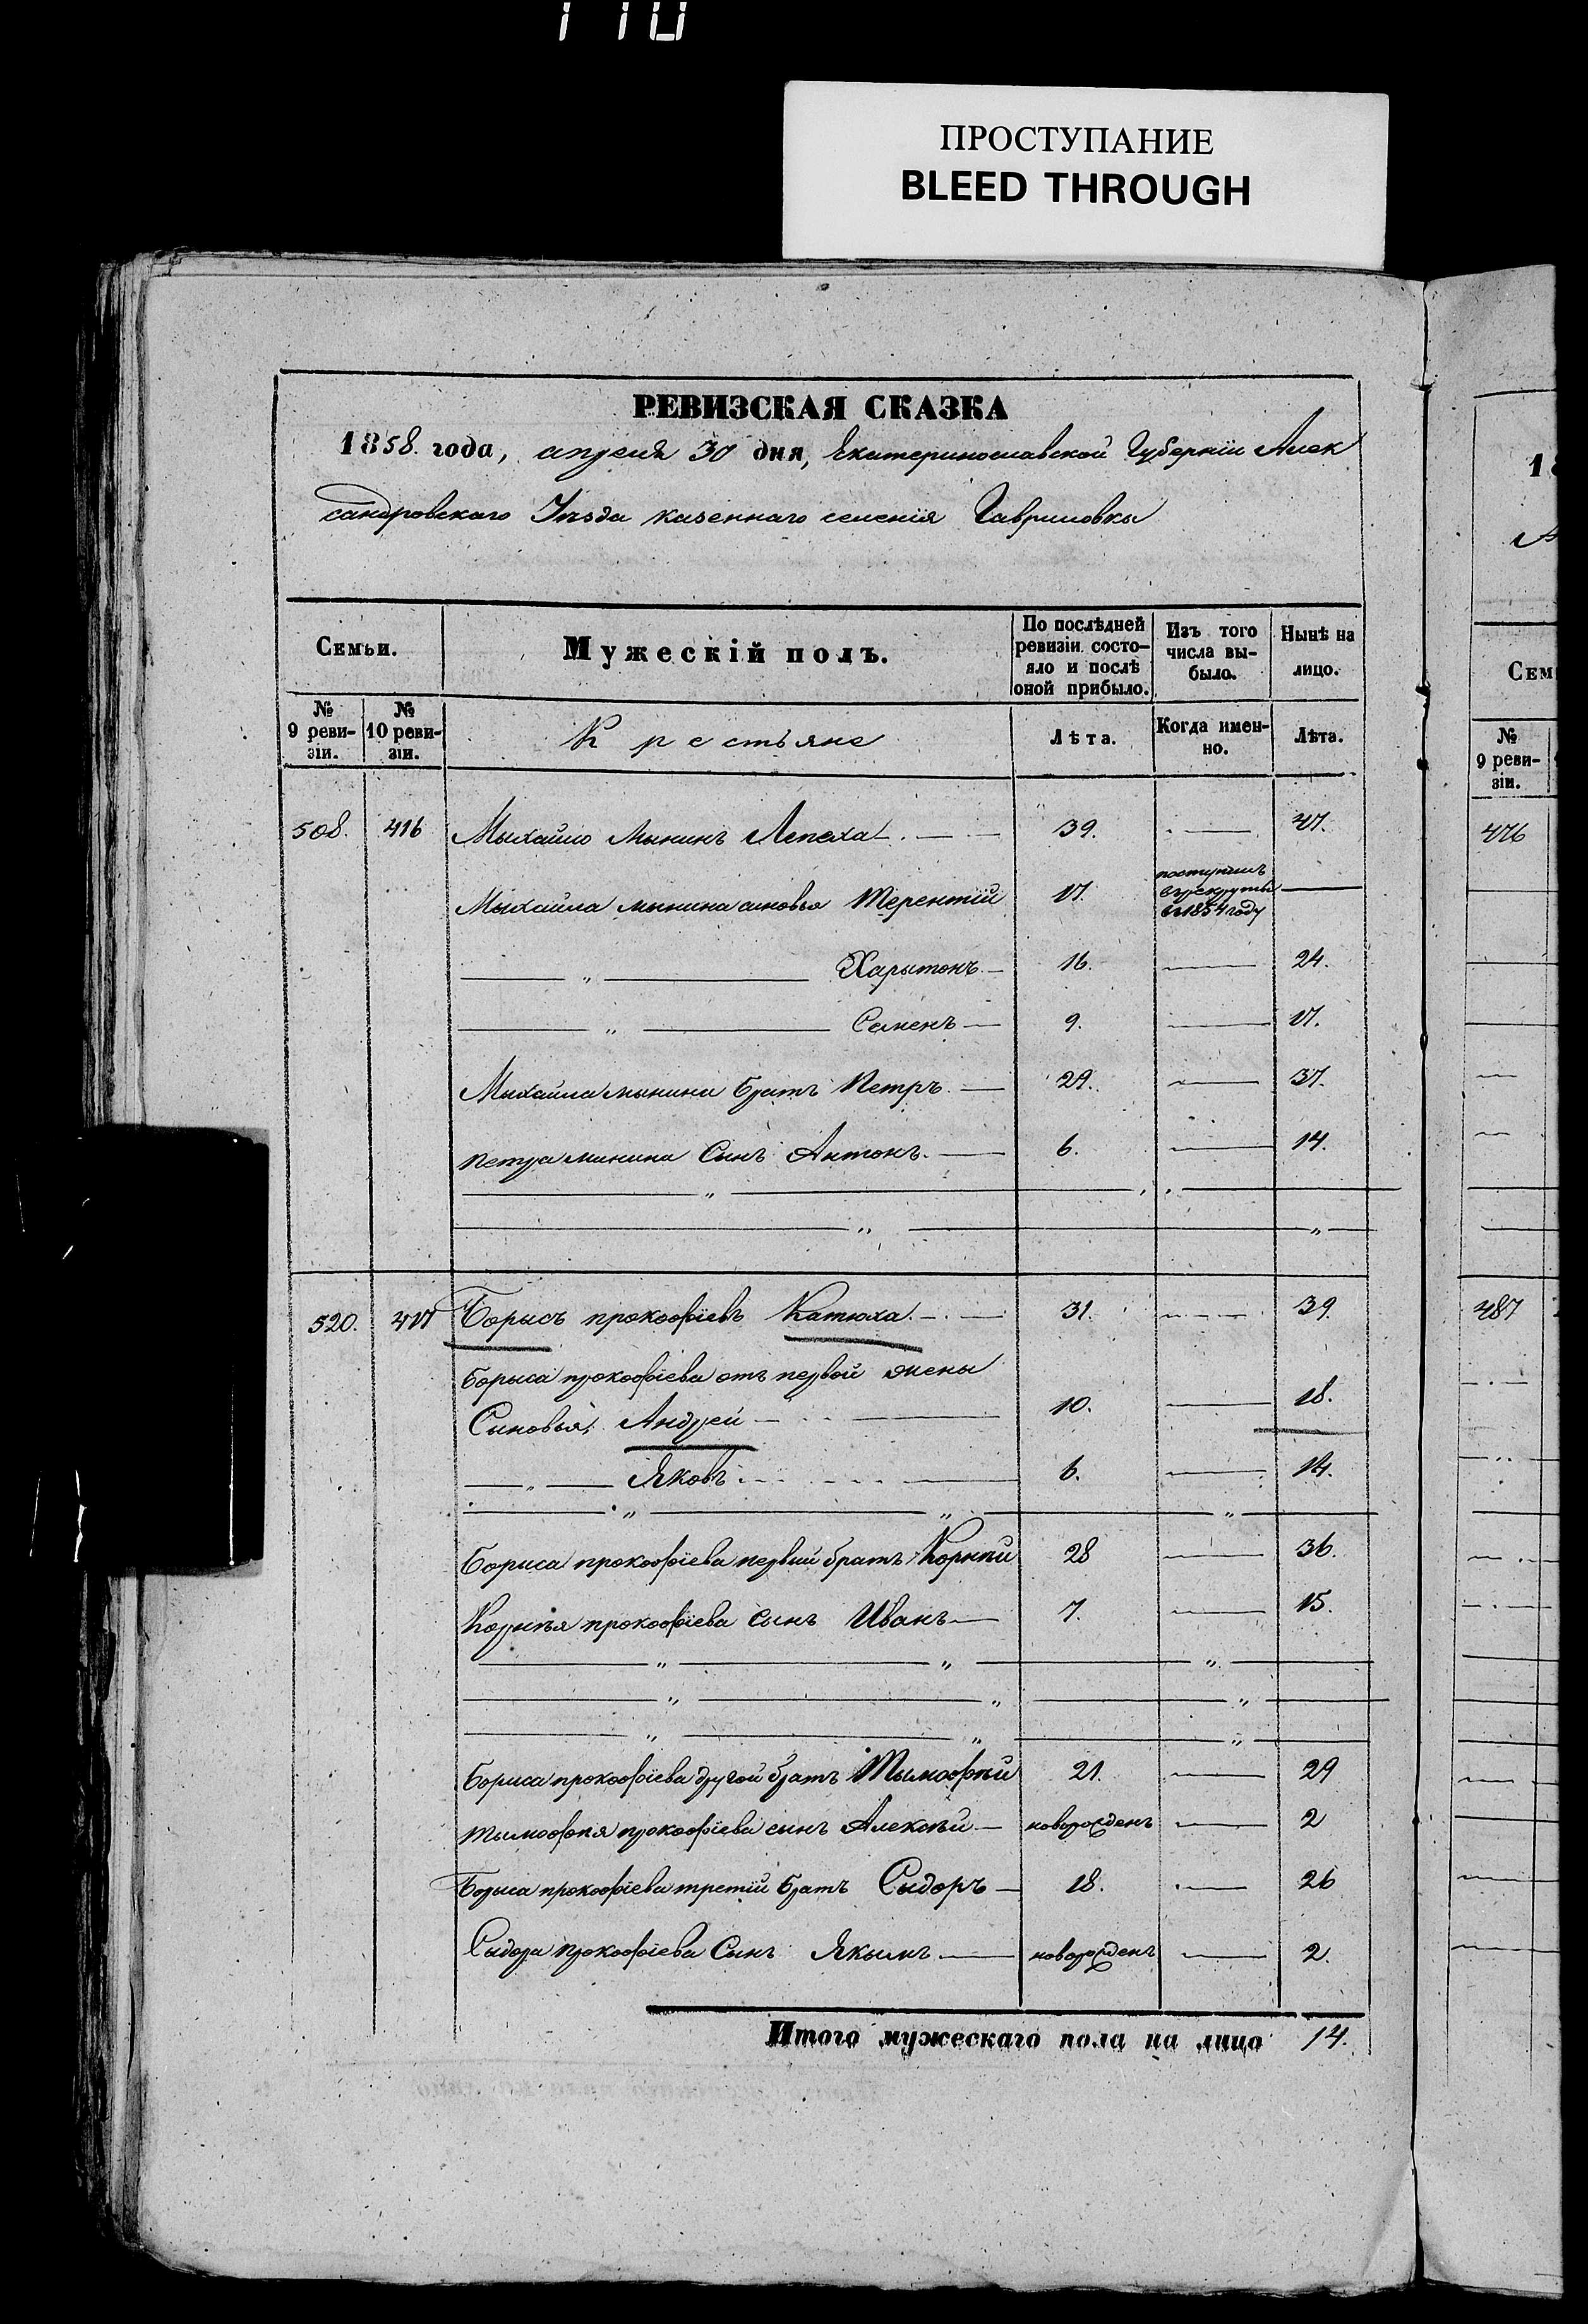 ПРОСТУПАНИЕ
BLEED THROUGH
РЕВИЗСКАЯ СКАЗКА
1858. года, апреля 30 дня, Екатеринославской Губерніи Алек
сандровскаго Уѣзда казеннаго селенія Гавриловки
Семьи.
Мужескій полъ.
По послѣдней ревизіи состо-яло и послѣ оной прибыло.
Изъ того числа вы-было.
Нынѣ на лицо.
№ 9 реви-зіи.
№ 10 реви-зіи.
Крестьяне
Лѣта.
Когда имен-но.
Лѣта.
508. 416 Мыхайло Мынинъ Лепеха 39. 47.
Мыхайла мынина сыновья Терентій 17. поступилъ
въ рекруты
въ 1854 году
" Харытонъ 16. 24.
" Семенъ 9. 17.
Мыхайла мынина братъ Петръ 29. 37.
Петра минина Сынъ Антонъ. 6. 14.
520. 417 Борысъ прокофіевъ Катюха. 31. 39.
Борыса прокофіева отъ первой жены
Сыновья, Андрей 10. 18.
" Яковъ 6. 14.
Бориса прокофіева первый братъ Корнѣй 28 36.
Корнѣя прокофіева сынъ Иванъ 7. 15.
Бориса прокофіева другой братъ Тымофѣй 21. 29
Тымофѣя прокофіева сынъ Алексѣй новорожденъ 2
Борыса прокофіева третій братъ Сыдоръ 18. 26
Сыдора прокофіева Сынъ Якымъ новорожденъ 2.
Итого мужескаго пола на лицо 14.
18
Сем
№ 9 реви-зіи.
476
487